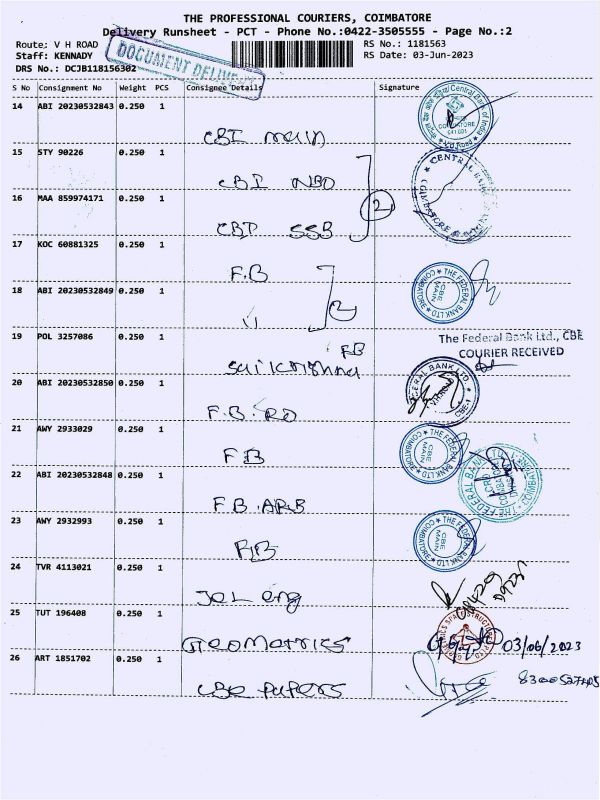 THE PROFESSIONAL COURIERS, COIMBATORE
Delivery Runsheet - PCT - Phone No.:0422-3505555 - Page No.:2
Route: V H ROAD
RS No.: 1181563
Staff: KENNADY
RS Date: 03-Jun-2023
DRS No.: DCJB118156302
DOCUMENT DELIVERY
S No Consignment No Weight PCS Consignee Details Signature
14 ABI 20230532843 0.250 1
CBI main
15 STY 90226 0.250 1
CBI NBO
16 MAA 859974171 0.250 1
CBI SSB
2
17 KOC 60881325 0.250 1
F.B
18 ABI 20230532849 0.250 1
2
19 POL 3257086 0.250 1
The Federal Bank Ltd., CBE
COURIER RECEIVED
FB
Saikrishna
20 ABI 20230532850 0.250 1
F.B. RO
21 AWY 2933029 0.250 1
F B
22 ABI 20230532848 0.250 1
F.B. ARB
23 AWY 2932993 0.250 1
F.B
24 TVR 4113021 0.250 1
Jel eng
25 TUT 196408 0.250 1
Geometrics
03/06/2023
26 ART 1851702 0.250 1
CBE Papers